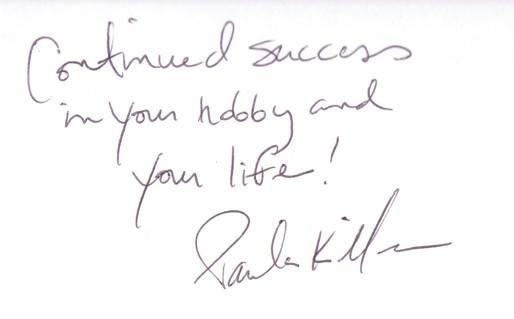 Continued success
in your hobby and
your life!
Paula Killen